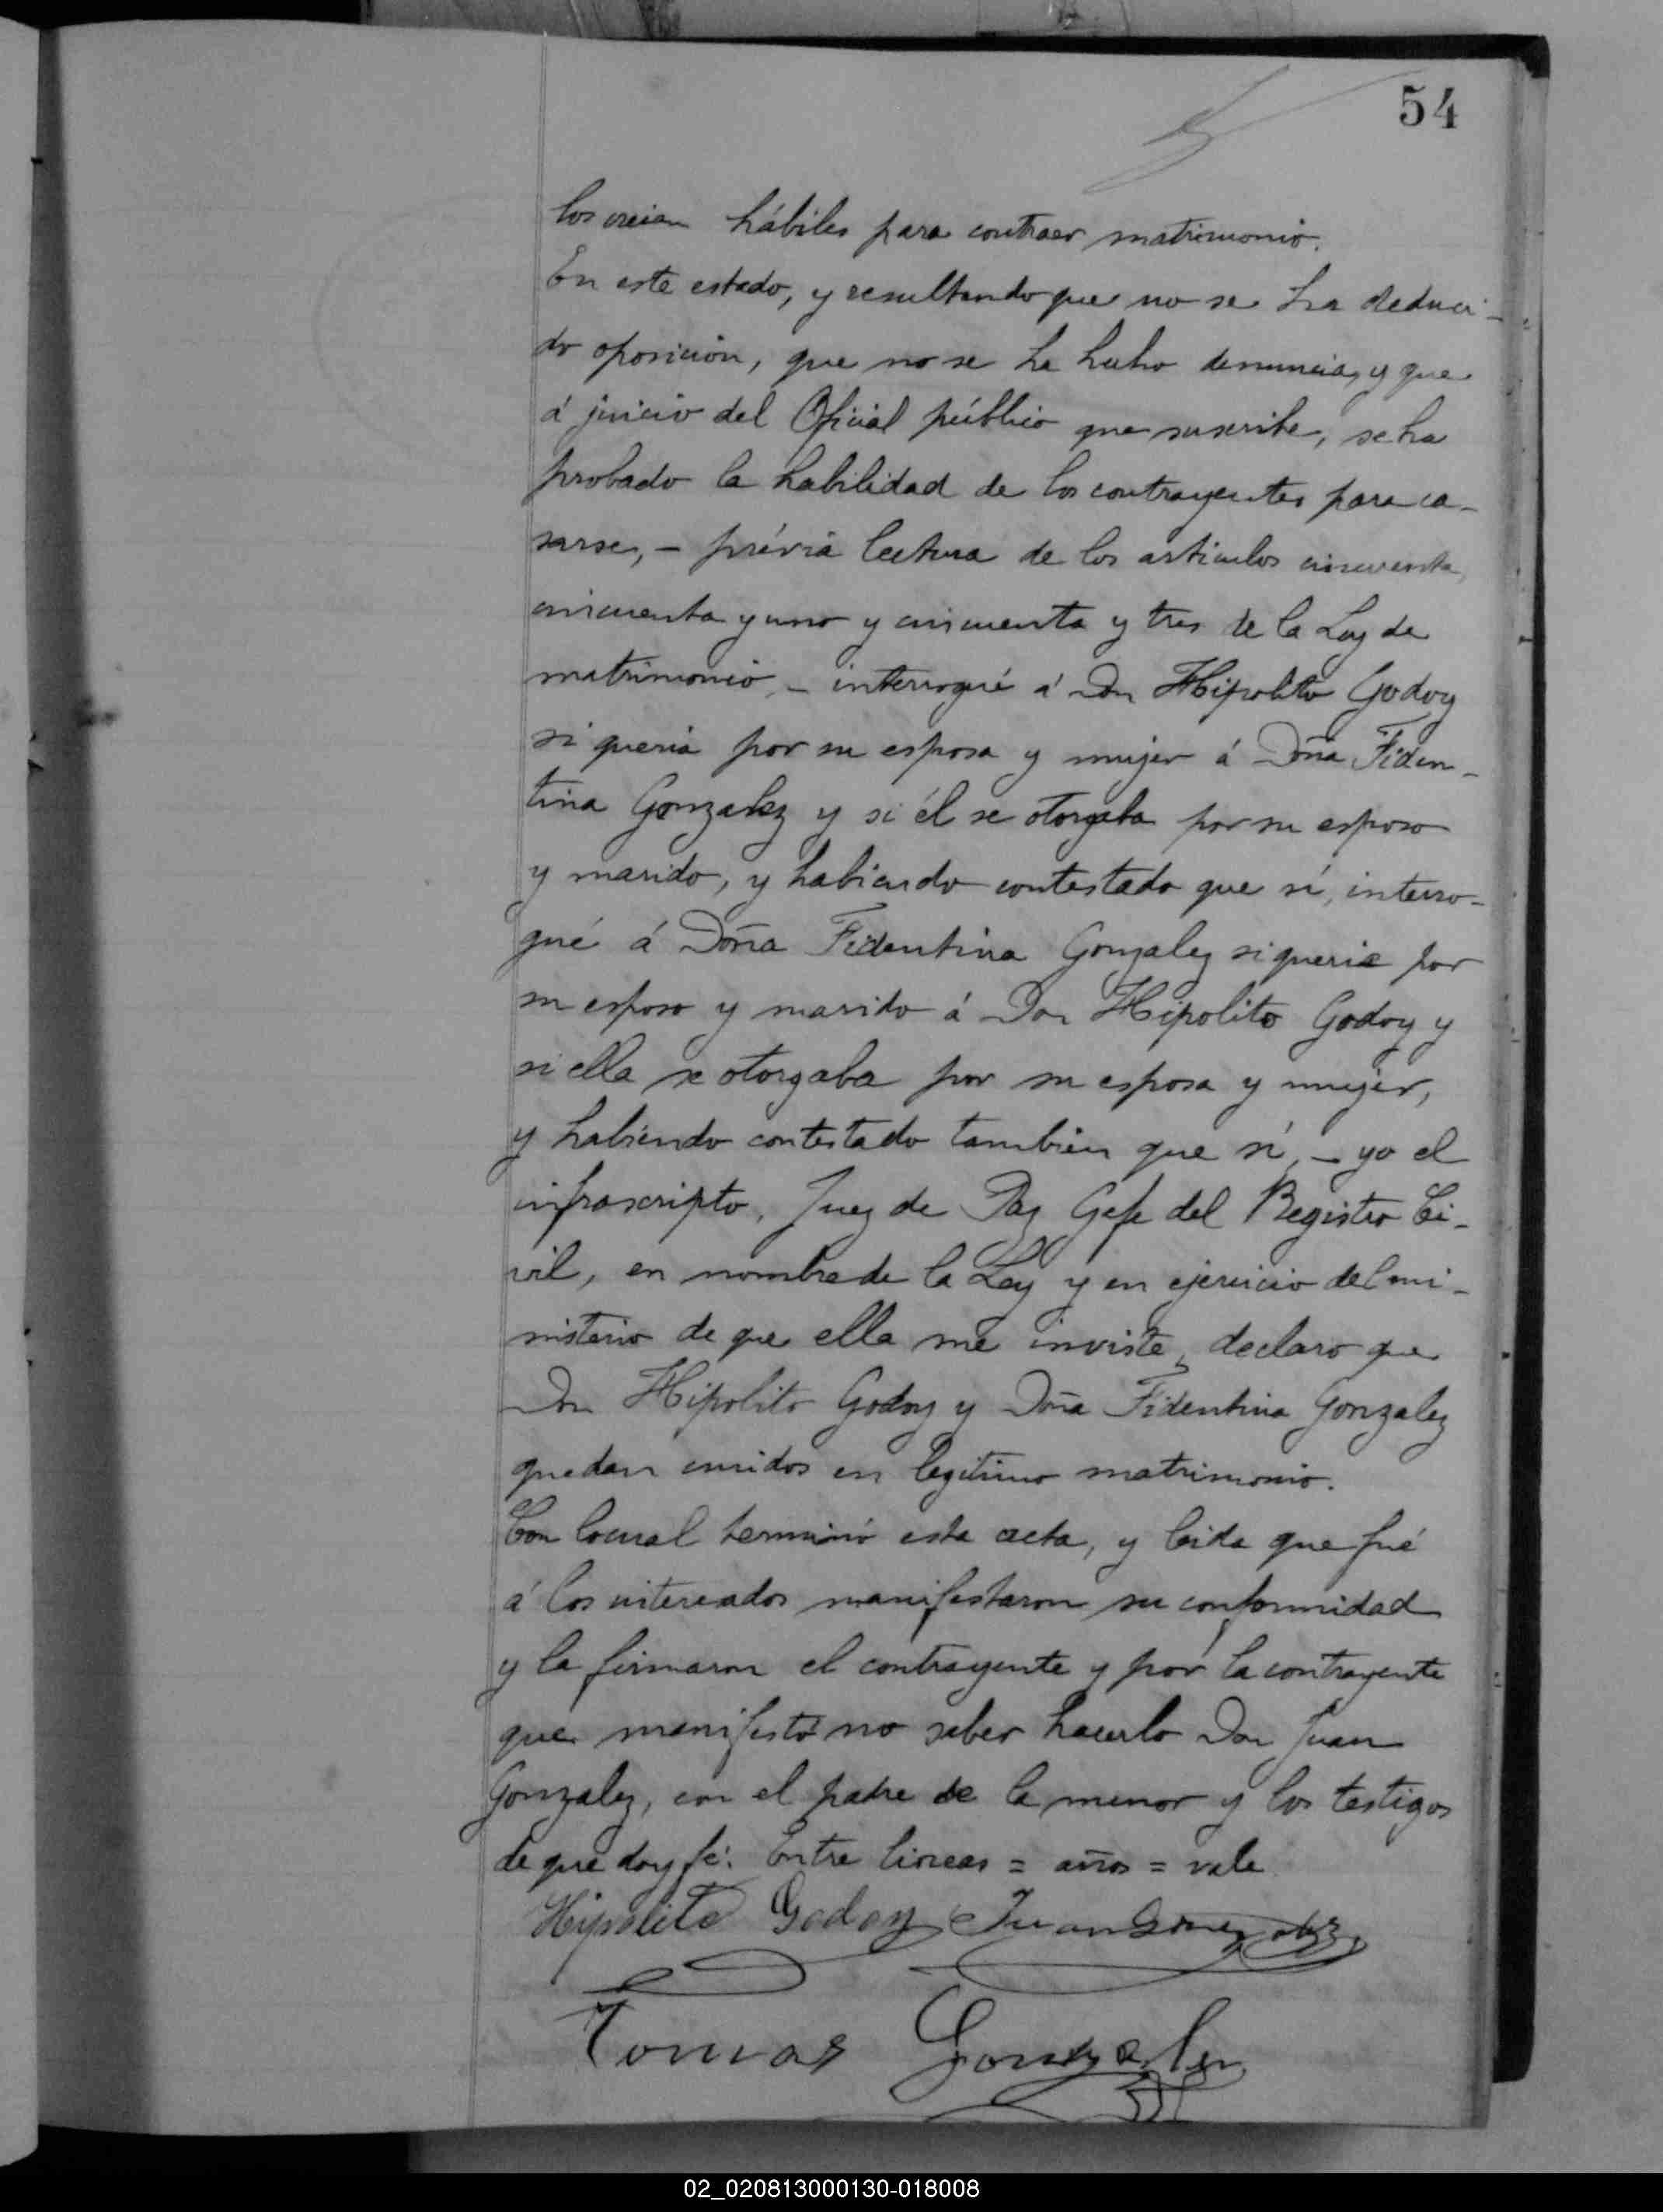 54
los creian hábiles para contraer matrimonio.
En este estado, y resultando que no se ha deduci-
do oposición, que no se ha hecho denuncia, y que
á juicio del Oficial público que suscribe, se ha
probado la habilidad de los contrayentes para ca-
sarse, - prévia lectura de los articulos cincuenta,
cincuenta y uno y cincuenta y tres de la Ley de
matrimonio, - interrogué á Don Hipolito Godoy
si queria por su esposa y mujer á Doña Fiden-
tina Gonzalez y si él se otorgaba por su esposo
y marido, y habiendo contestado que sí, interro-
gué á Doña Fidentina Gonzalez si queria por
su esposo y marido á Don Hipolito Godoy y
si ella se otorgaba por su esposa y mujer,
y habiendo contestado tambien que sí, - yo el
infrascripto, Juez de Paz Gefe del Registro Ci-
vil, en nombre de la Ley y en ejercicio del mi-
nisterio de que ella me inviste, declaro que
Don Hipolito Godoy y Doña Fidentina Gonzalez
quedan unidos en legitimo matrimonio.
Con lo cual terminó esta acta, y leida que fué
á los interesados manifestaron su conformidad
y la firmaron el contrayente y por la contrayente
que manifestó no saber hacerlo Don Juan
Gonzalez, con el padre de la menor y los testigos
de que doy fé. Entre lineas = años = vale
Hipolito Godoy Juan Gonzalez
Tomas Gonzalez
02_020813000130-018008